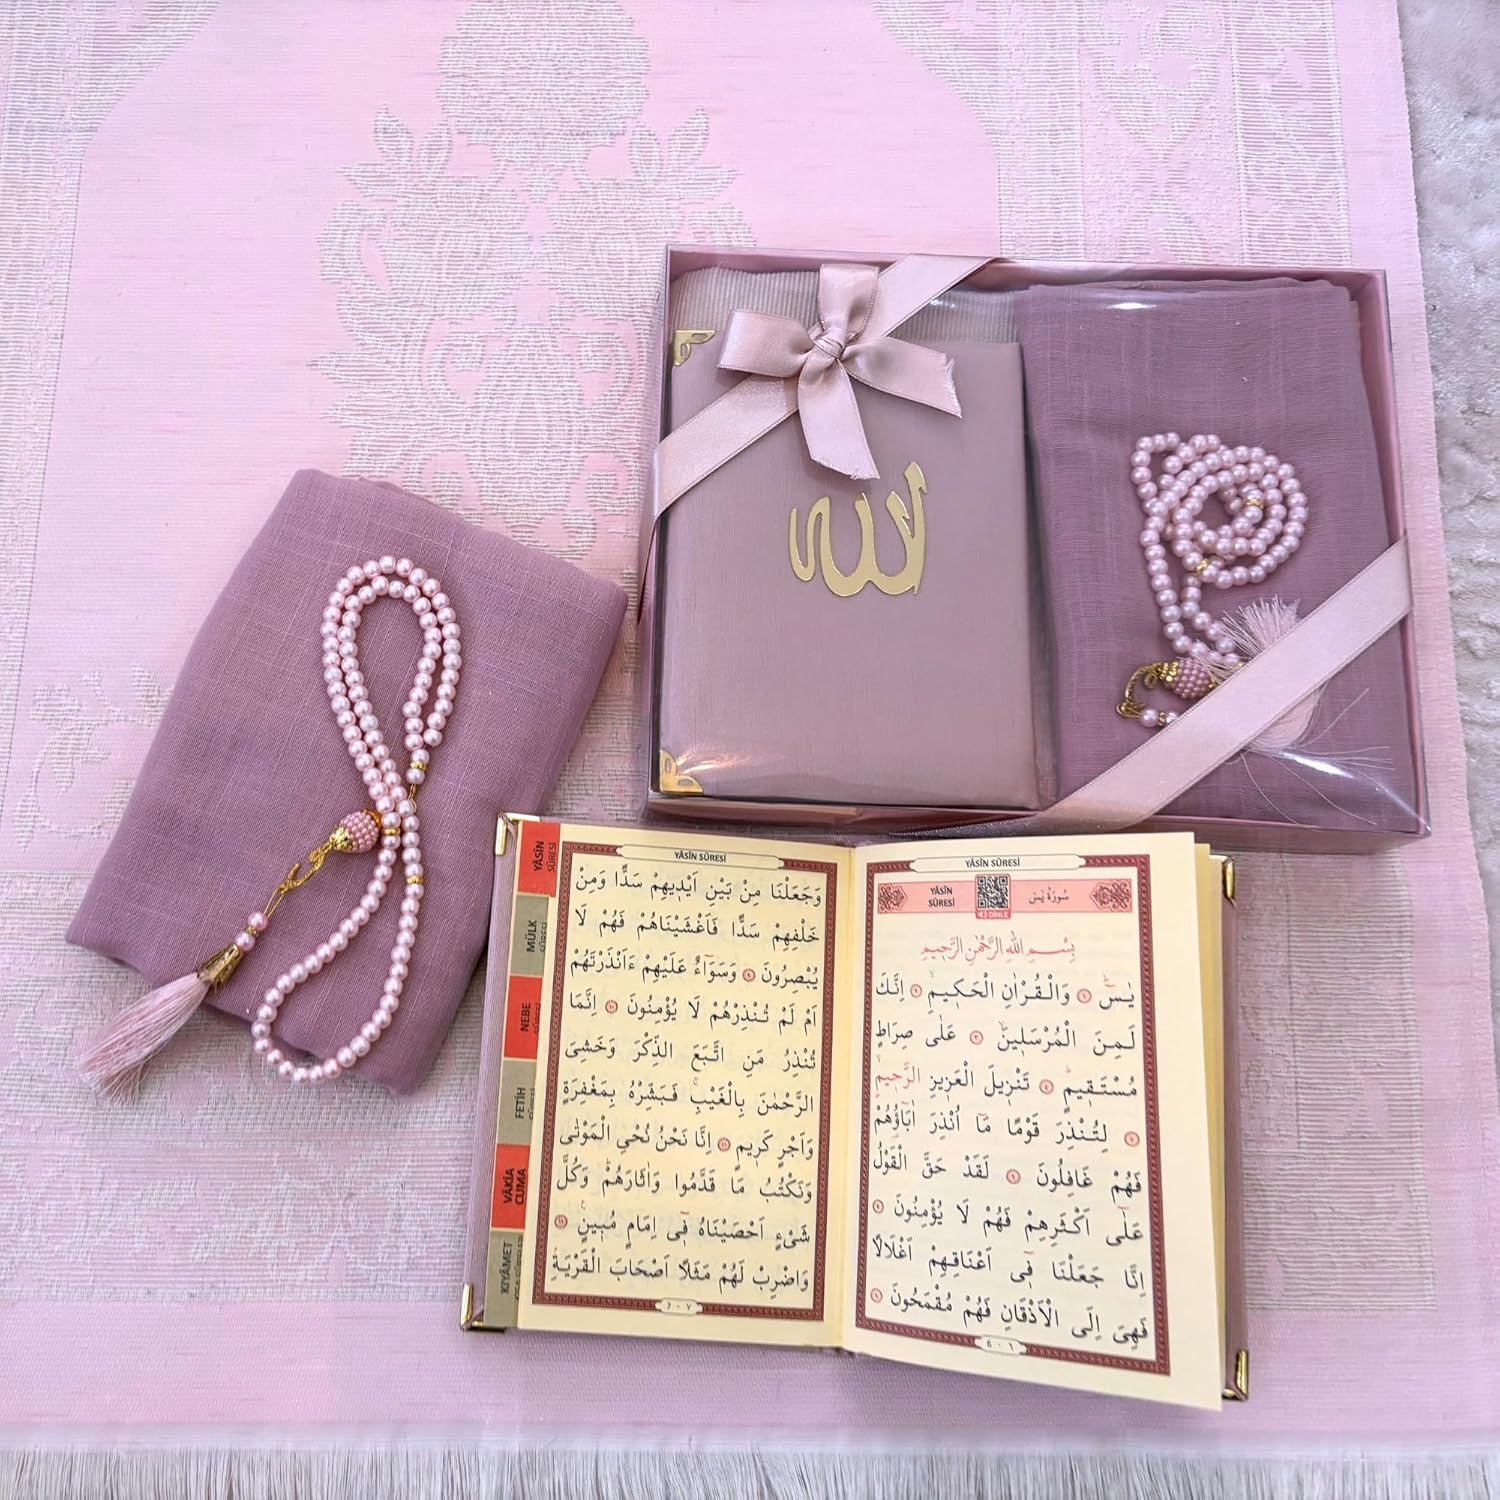 الله
YÂSÎN SÛRESİ
MÜLK SÛRESİ
NEBE SÛRESİ
FETİH SÛRESİ
VÂKİA CUMA
KIYÂMET
YÂSÎN SÛRESİ
YÂSÎN SÛRESİ
DİNLE
سُورَةُ يٰسٓ
بِسْمِ اللّٰهِ الرَّحْمٰنِ الرَّحِيمِ
يٰسٓ ١ وَالْقُرْاٰنِ الْحَكِيمِ ٢ اِنَّكَ
لَمِنَ الْمُرْسَلِينَ ٣ عَلٰى صِرَاطٍ
مُسْتَقِيمٍ ٤ تَنْزِيلَ الْعَزِيزِ الرَّحِيمِ
٥ لِتُنْذِرَ قَوْمًا مَٓا اُنْذِرَ اٰبَٓاؤُ۬هُمْ
فَهُمْ غَافِلُونَ ٦ لَقَدْ حَقَّ الْقَوْلُ
عَلٰٓى اَكْثَرِهِمْ فَهُمْ لَا يُؤْمِنُونَ ٧
اِنَّا جَعَلْنَا فِٓى اَعْنَاقِهِمْ اَغْلَالًا
فَهِىَ اِلَى الْاَذْقَانِ فَهُمْ مُقْمَحُونَ ٨
6 - ٦
YÂSÎN SÛRESİ
وَجَعَلْنَا مِنْ بَيْنِ اَيْدِيهِمْ سَدًّا وَمِنْ
خَلْفِهِمْ سَدًّا فَاَغْشَيْنَاهُمْ فَهُمْ لَا
يُبْصِرُونَ ٩ وَسَوَٓاءٌ عَلَيْهِمْ ءَاَنْذَرْتَهُمْ
اَمْ لَمْ تُنْذِرْهُمْ لَا يُؤْمِنُونَ ١٠ اِنَّمَا
تُنْذِرُ مَنِ اتَّبَعَ الذِّكْرَ وَخَشِىَ
الرَّحْمٰنَ بِالْغَيْبِ فَبَشِّرْهُ بِمَغْفِرَةٍ
وَاَجْرٍ كَرِيمٍ ١١ اِنَّا نَحْنُ نُحْىِ الْمَوْتٰى
وَنَكْتُبُ مَا قَدَّمُوا وَاٰثَارَهُمْ وَكُلَّ
شَىْءٍ اَحْصَيْنَاهُ فِٓى اِمَامٍ مُبِينٍ ١٢
وَاضْرِبْ لَهُمْ مَثَلًا اَصْحَابَ الْقَرْيَةِ
7 - ٧